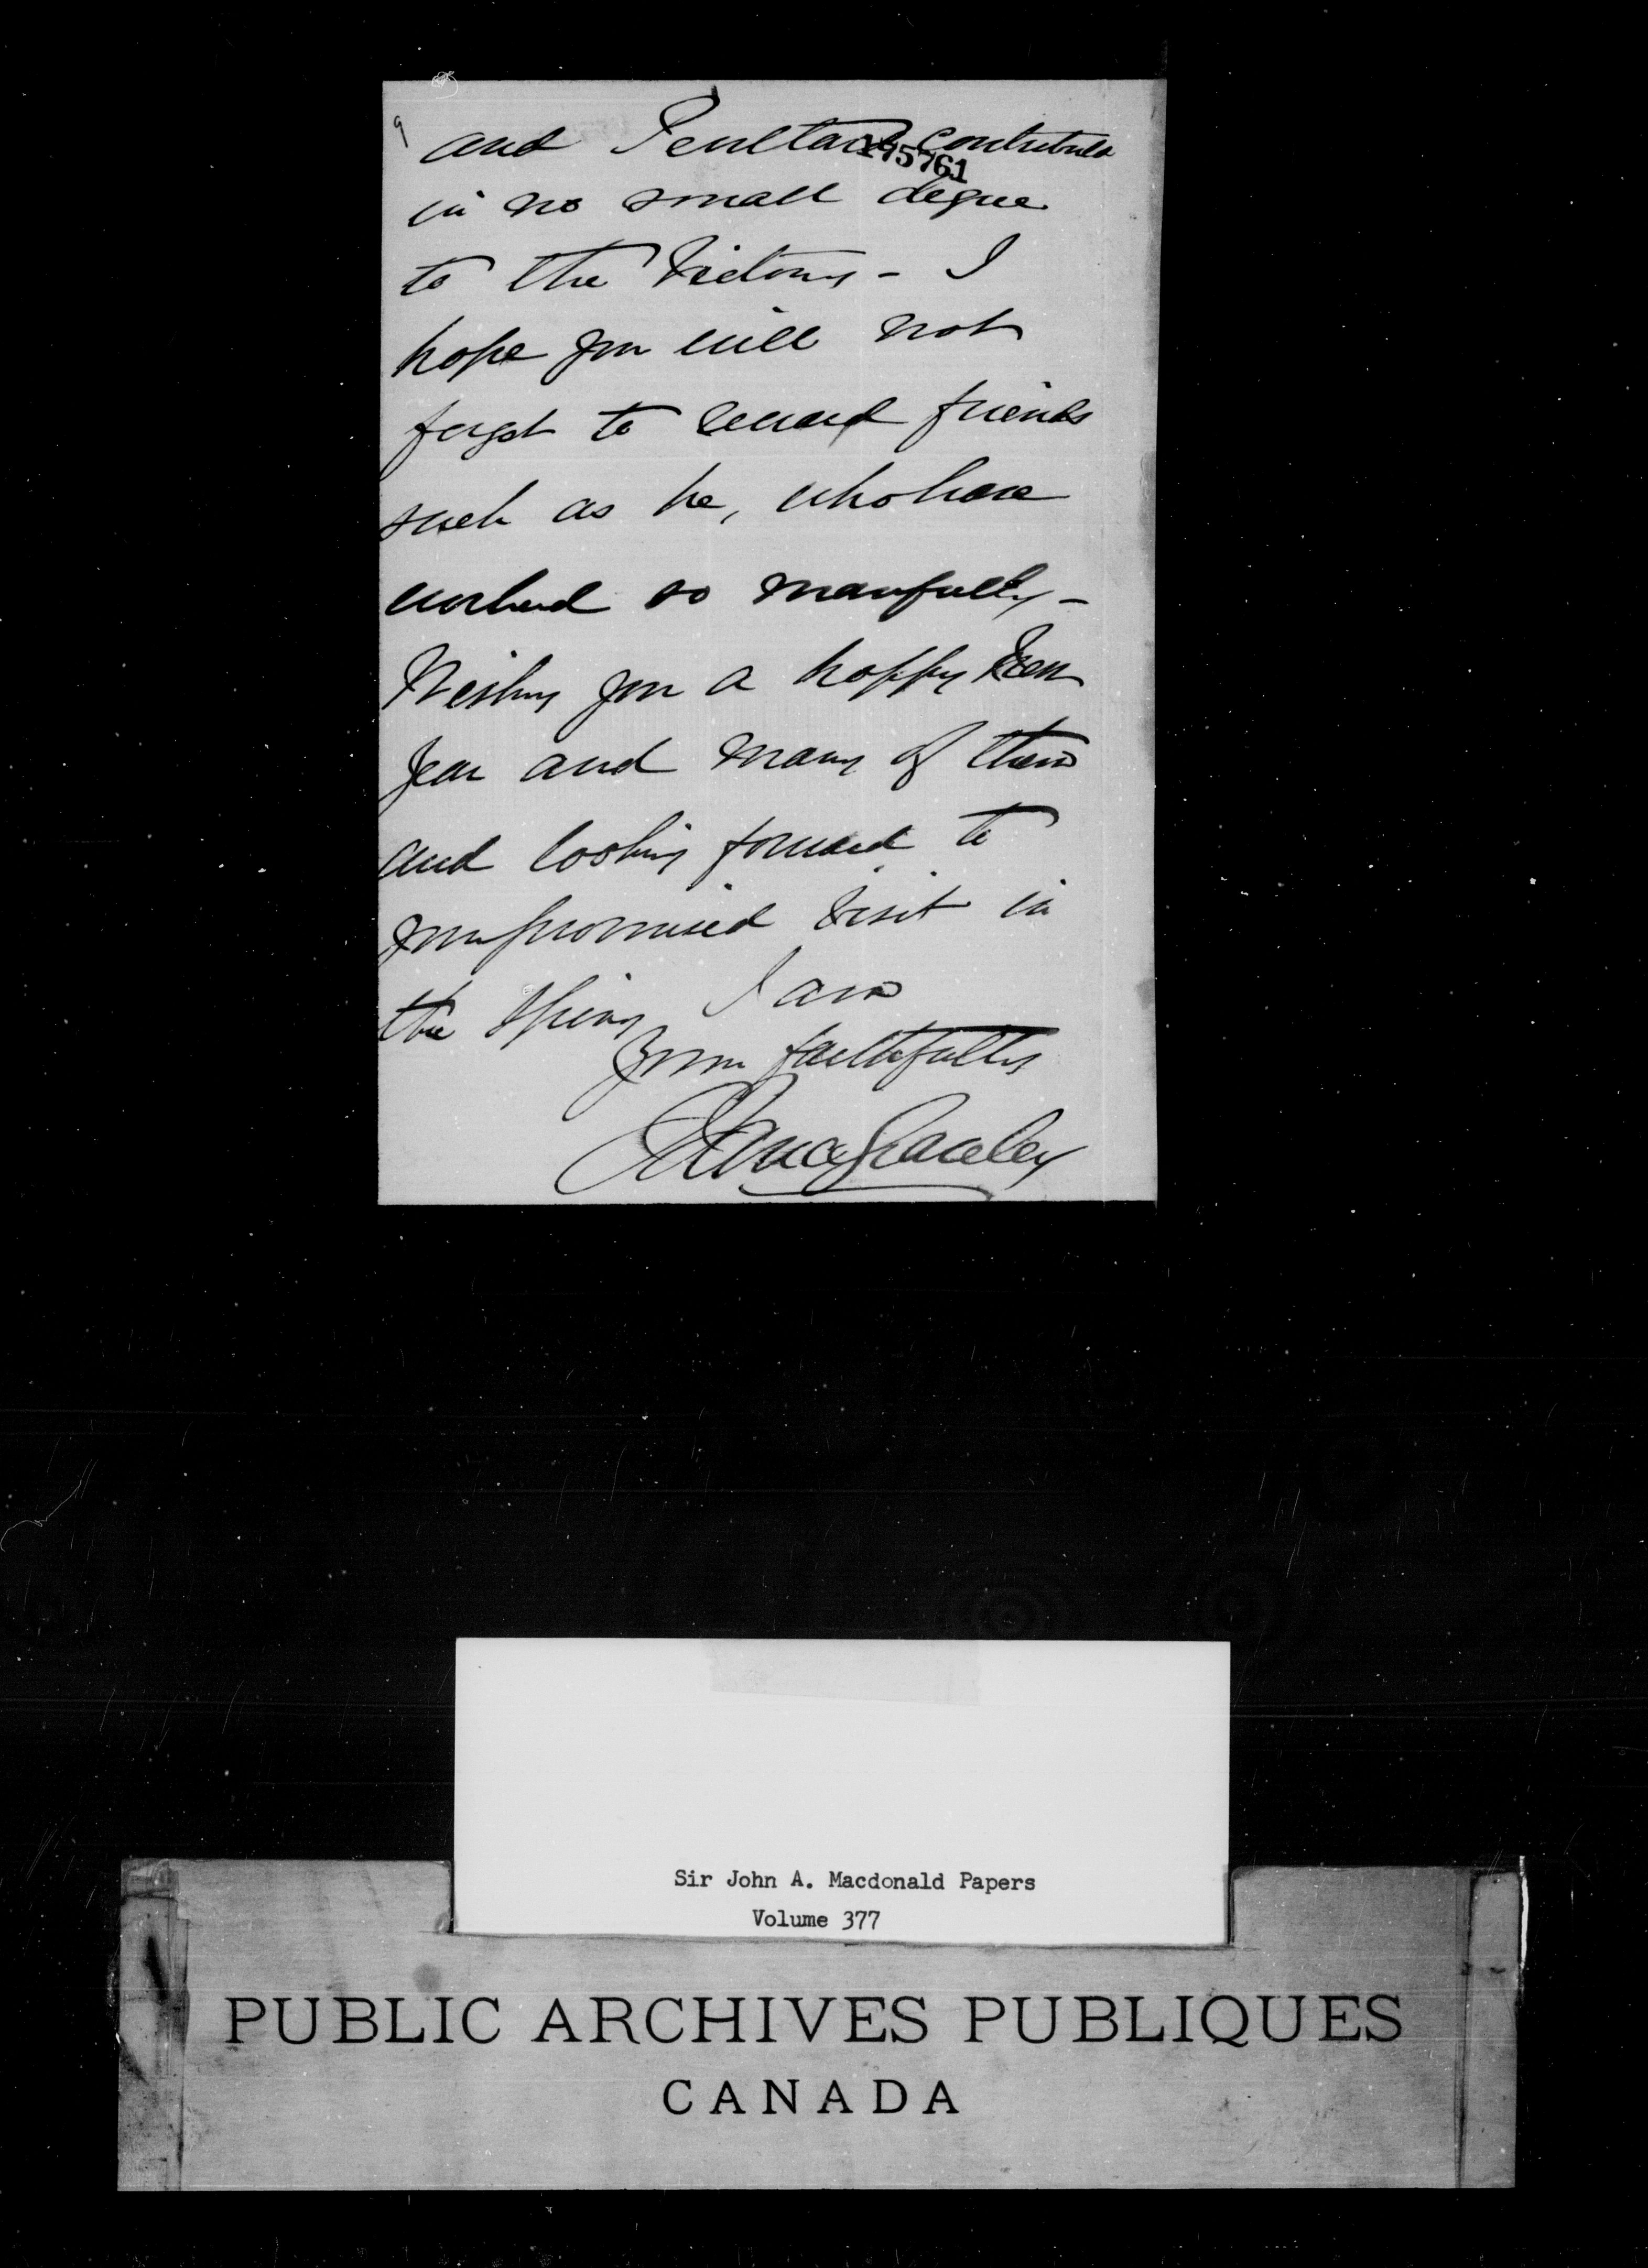 9
and contributed
175761
in no small degree
to the Victory - I
hope you will not
forget to reward friends
such as he, who have
worked so manfully -
Wishing you a happy New
Year and many of them
and looking forward to
your promised visit in
the Spring I am
Yours faithfully
Sir John A. Macdonald Papers
Volume 377
PUBLIC ARCHIVES PUBLIQUES
CANADA